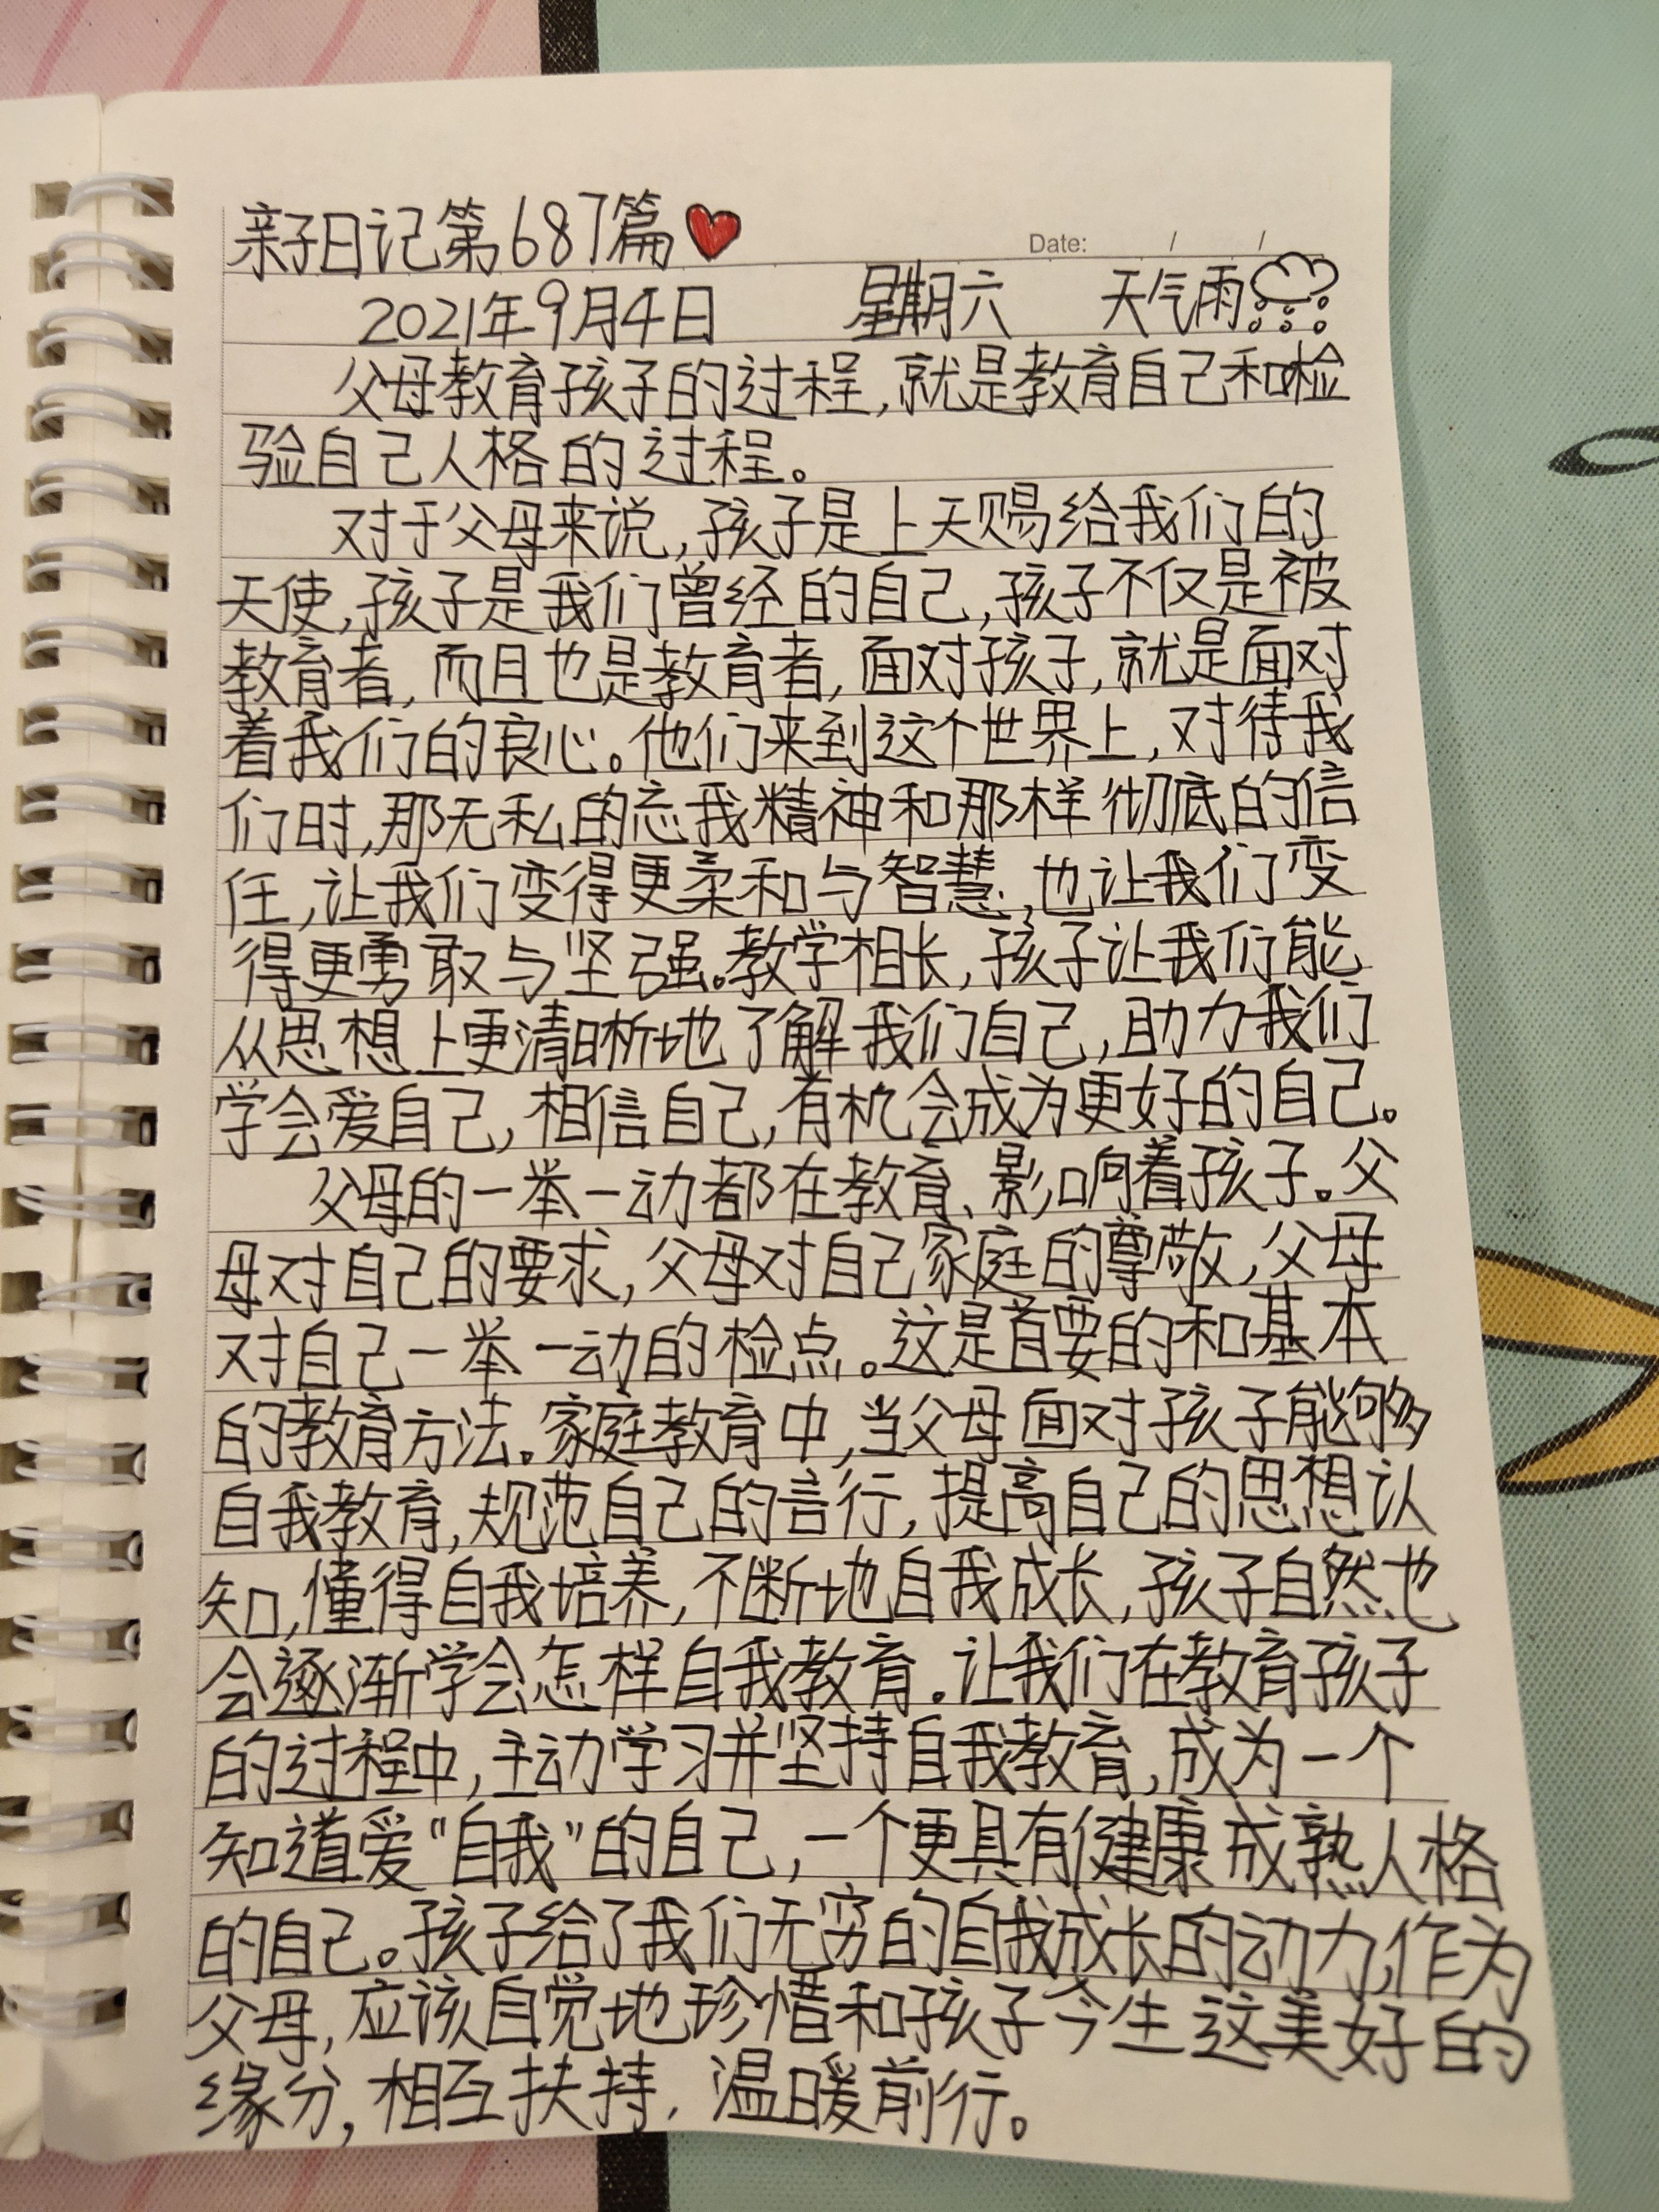 亲子日记第687篇
Date: / /
2021年9月4日 星期六 天气雨
父母教育孩子的过程,就是教育自己和检
验自己人格的过程。
对于父母来说,孩子是上天赐给我们的
天使,孩子是我们曾经的自己,孩子不仅是被
教育者,而且也是教育者,面对孩子,就是面对
着我们的良心。他们来到这个世界上,对待我
们时,那无私的忘我精神和那样彻底的信
任,让我们变得更柔和与智慧,也让我们变
得更勇敢与坚强。教学相长,孩子让我们能
从思想上更清晰地了解我们自己,助力我们
学会爱自己,相信自己,有机会成为更好的自己。
父母的一举一动都在教育、影响着孩子。父
母对自己的要求,父母对自己家庭的尊敬,父母
对自己一举一动的检点。这是首要的和基本
的教育方法。家庭教育中,当父母面对孩子能够
自我教育,规范自己的言行,提高自己的思想认
知,懂得自我培养,不断地自我成长,孩子自然也
会逐渐学会怎样自我教育。让我们在教育孩子
的过程中,主动学习并坚持自我教育,成为一个
知道爱"自我"的自己,一个更具有健康成熟人格
的自己。孩子给了我们无穷的自我成长的动力,作为
父母,应该自觉地珍惜和孩子今生这美好的
缘分,相互扶持,温暖前行。